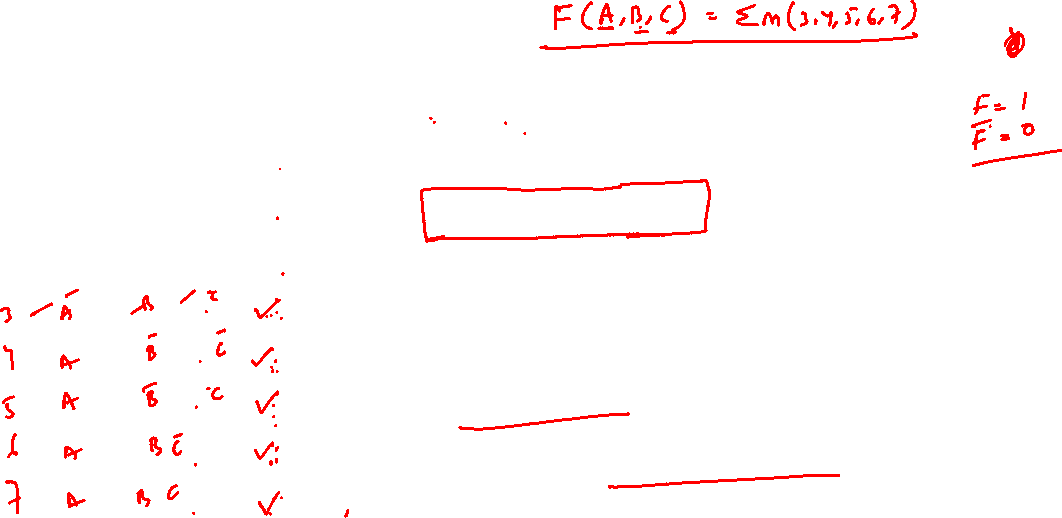 F(A,B,C) = Σm(3,4,5,6,7)
F = 1
F̅ = 0
3 A̅ B C
4 A B̅ C̅
5 A B̅ C
6 A B C̅
7 A B C